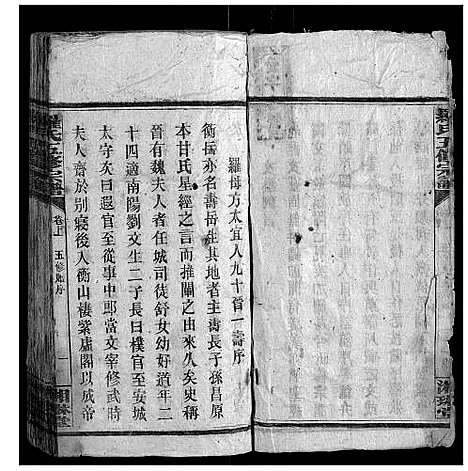 羅母方太宜人九十晉一壽序
衡岳亦名壽岳生其地者主壽長子孫昌原
本甘氏星經之言而推闡之由來久矣史稱
晉有魏夫人者任城司徒舒女幼好道年二
十四適南陽劉文生二子長曰樸官至安城
太守次曰遐官至從事中郎當文宰修武時
夫人齋於別寢後入衡山棲紫虛閣以成帝
羅氏五修宗譜
卷上
五修壽序
一
羅氏五修宗譜